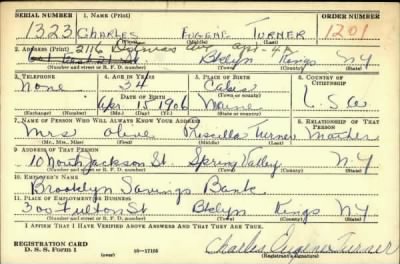 SERIAL NUMBER 1. NAME (Print) ORDER NUMBER
1323 CHARLES EUGENE TURNER 1201
(First) (Middle) (Last)
2. ADDRESS (Print) 2116 Ave apt-4A
Bklyn Kings NY
(Number and street or R. F. D. number) (Town) (County) (State)
3. TELEPHONE 4. AGE IN YEARS 5. PLACE OF BIRTH 6. COUNTRY OF CITIZENSHIP
None 34 Calais
DATE OF BIRTH (Town or county)
Apr. 15 1906 Maine U.S.A
(Exchange) (Number) (Mo.) (Day) (Yr.) (State or country)
7. NAME OF PERSON WHO WILL ALWAYS KNOW YOUR ADDRESS 8. RELATIONSHIP OF THAT PERSON
Mrs Olive Priscilla Turner Mother
(Mr., Mrs., Miss) (First) (Middle) (Last)
9. ADDRESS OF THAT PERSON
10 North Jackson St. Spring Valley N-Y
(Number and street or R. F. D. number) (Town) (County) (State)
10. EMPLOYER'S NAME
Brooklyn Savings Bank
11. PLACE OF EMPLOYMENT OR BUSINESS
300 Fulton St Bklyn Kings NY
(Number and street or R. F. D. number) (Town) (County) (State)
I AFFIRM THAT I HAVE VERIFIED ABOVE ANSWERS AND THAT THEY ARE TRUE.
REGISTRATION CARD
D. S. S. Form 1 16-17105 Charles Eugene Turner
(Registrant's signature)